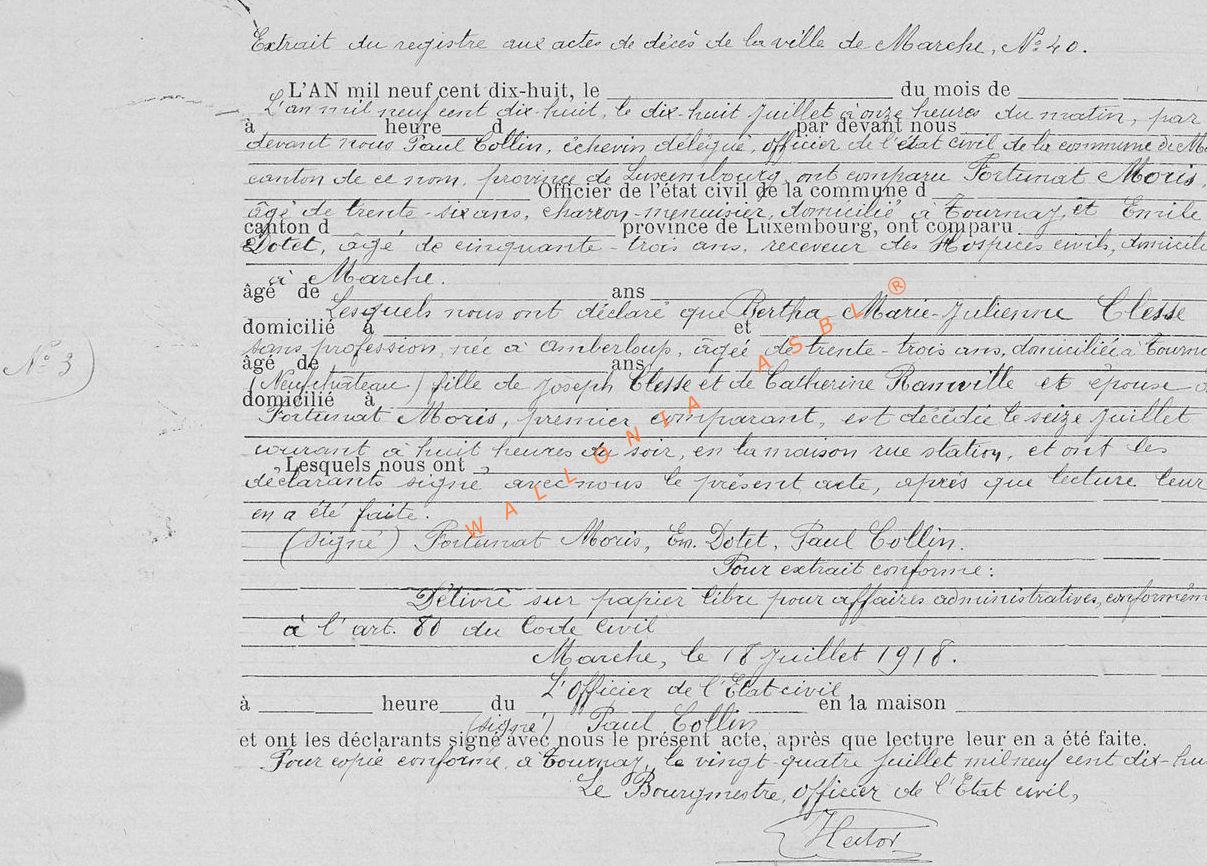 Extrait du registre aux actes de décès de la ville de Marche, N° 40.
L'AN mil neuf cent dix-huit, le du mois de
L'an mil neuf cent dix-huit, le dix-huit Juillet à onze heures du matin, par
à heure d par devant nous
devant nous Paul Collin, échevin délégué, officier de l'état civil de la commune de Ma
canton de ce nom, province de Luxembourg, ont comparu Fortunat Moris,
Officier de l'état civil de la commune d
âgé de trente-six ans, charron-menuisier, domicilié à Tournay, et Emile
canton d province de Luxembourg, ont comparu
Dotet, âgé de cinquante-trois ans, receveur des Hospices civils, domicili
à Marche.
âgé de ans
Lesquels nous ont déclaré que Bertha Marie-Julienne Clesse
domicilié à et
sans profession, née à Amberloup, âgée de trente-trois ans, domiciliée à Tourna
âgé de ans
N° 3
(Neufchâteau) fille de Joseph Clesse et de Catherine et épouse d
domicilié à
Fortunat Moris, premier comparant, est décédée le seize Juillet
courant à huit heures du soir, en la maison rue station, et ont les
Lesquels nous ont
déclarants signé avec nous le présent acte, après que lecture leur
en a été faite.
(signé) Fortunat Moris, Em. Dotet, Paul Collin.
Pour extrait conforme:
Délivré sur papier libre pour affaires administratives, conformém
à l'art. 80 du Code Civil
Marche, le 18 Juillet 1918.
L'Officier de l'Etat civil,
à heure du en la maison
(signé) Paul Collin
et ont les déclarants signé avec nous le présent acte, après que lecture leur en a été faite.
Pour copie conforme, à Tournay, le vingt-quatre Juillet mil neuf cent dix-hu
Le Bourgmestre, officier de l'Etat civil,
WALLONIA ASBL ®